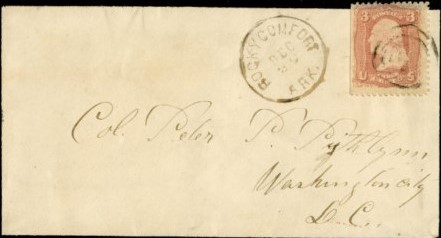 ROCKYCOMFORT
DEC
ARK.
3 3
U S
Col. Peter P. Pythlynn
Washington City
D.C.